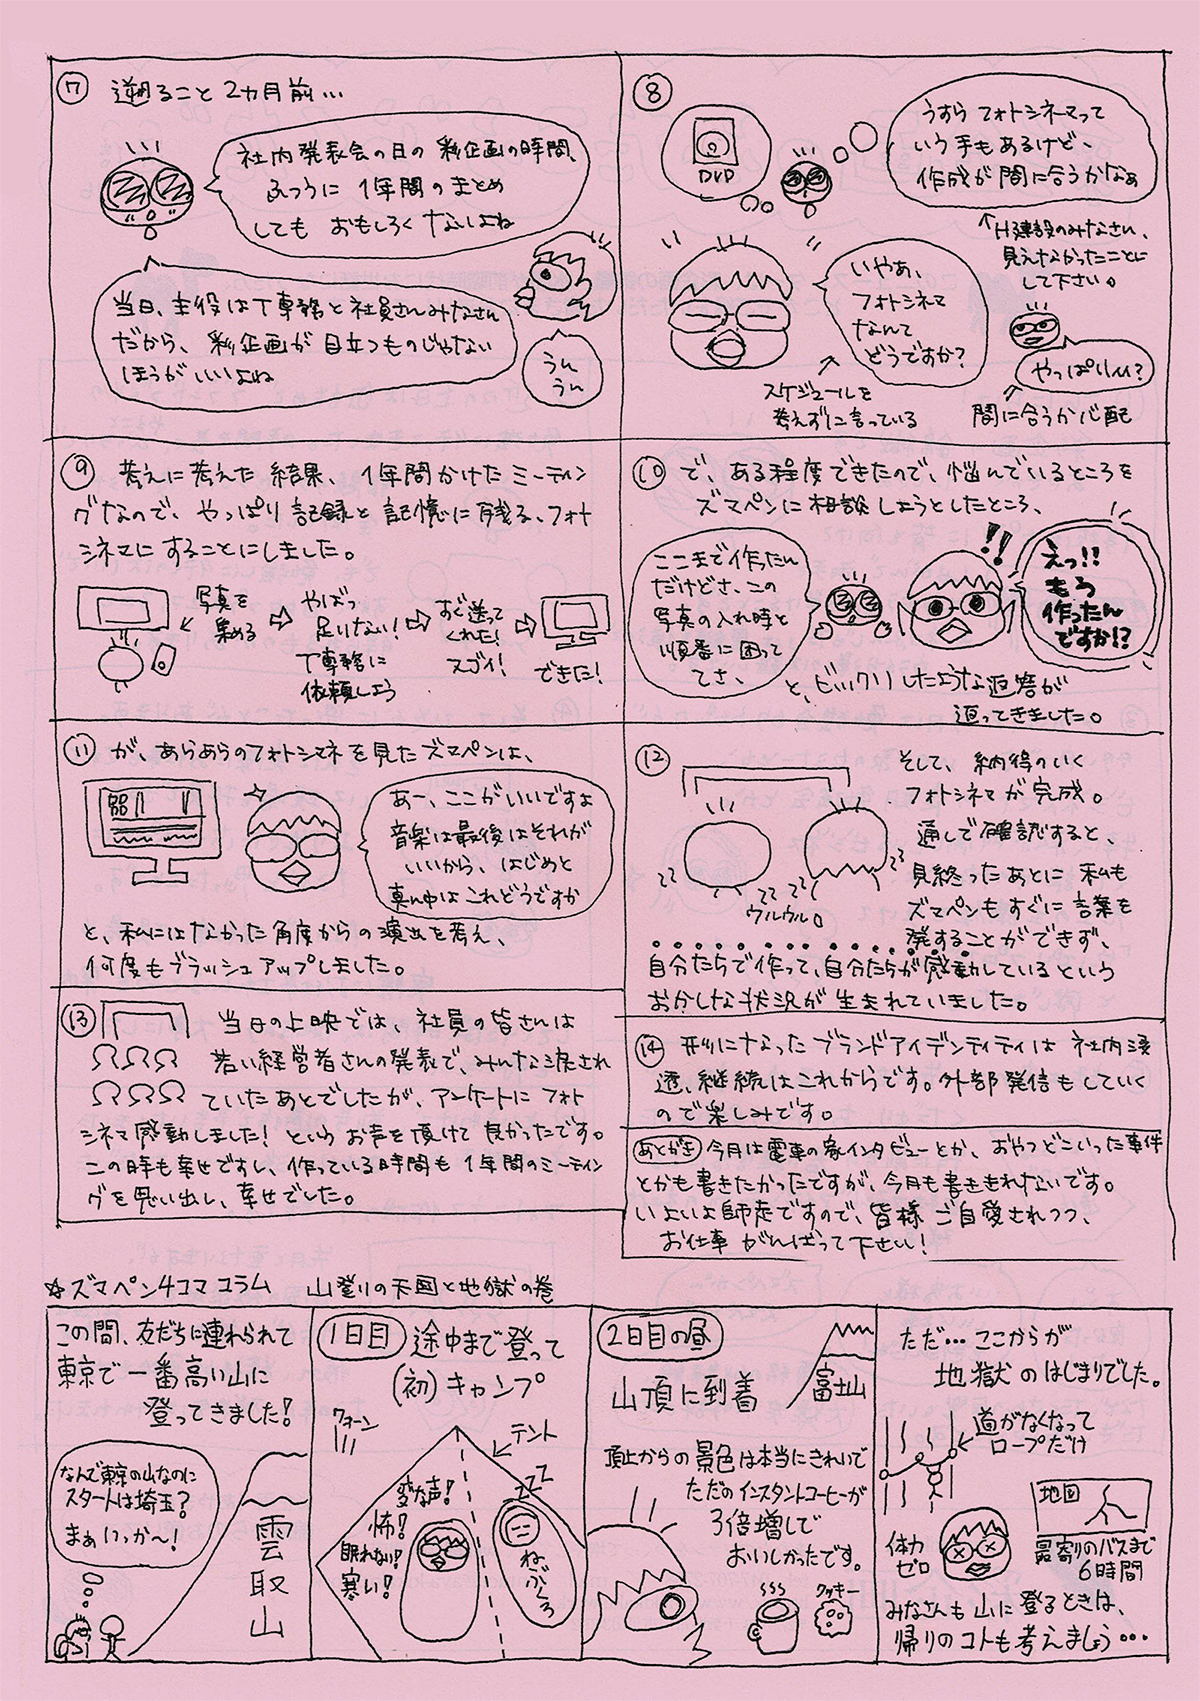 ⑦ 遡ること 2ヵ月前…
社内発表会の日の 彩企画の時間、
ふつうに 1年間のまとめ
しても おもしろくないよね
当日、主役はT専務と社員さんみなさん
だから、彩企画が目立つものじゃない
ほうがいいよね
うん
うん
⑧
DVD
うすら フォトシネマって
いう手もあるけど、
作成が間に合うかなぁ
↑H建設のみなさん、
見えなかったことに
して下さい。
いやぁ、
フォトシネマ
なんて
どうですか?
スケジュールを
考えずに言っている
やっぱりぃ?
間に合うか心配
⑨ 考えに考えた 結果、1年間かけた ミーティン
グなので、やっぱり 記録と記憶に残る、フォト
シネマにすることにしました。
写真を
集める
やばっ
足りない!
T専務に
依頼しよう
すぐ送って
くれた!
スゴイ!
できた!
⑩ で、ある程度できたので、悩んでいるところを
ズマペンに相談しようとしたところ、
ここまで作ったん
だけどさ、この
写真の入れ時と
順番に困って
てさ、
!!
えっ!!
もう
作ったん
ですか!?
と、ビックリしたような返答が
返ってきました。
⑪ が、あらあらのフォトシマネを見たズマペンは、
あー、ここがいいですよ
音楽は最後はそれが
いいから、はじめと
真ん中はこれどうですか
と、私にはなかった角度からの演出を考え、
何度もブラッシュアップしました。
⑫
そして、納得のいく
フォトシネマが完成。
通しで確認すると、
見終ったあとに 私も
ズマペンもすぐに言葉を
発することができず、
ウルウル。
自分たちで作って、自分たちが感動しているという
おかしな状況が生まれていました。
⑬ 当日の上映では、社員の皆さんは
若い経営者さんの発表で、みんな涙され
ていたあとでしたが、アンケートに フォト
シネマ感動しました! という お声を頂けて 良かったです。
この時も幸せですし、作っている時間も 1年間のミーティン
グを思い出し、幸せでした。
⑭ 形になった ブランドアイデンティティは 社内浸
透、継続はこれからです。外部発信もしていく
ので楽しみです。
あとがき 今月は電車の インタビューとか、おやつどこいった事件
とかも書きたかったですが、今月も書ききれないです。
いよいよ師走ですので、皆様 ご自愛されつつ、
お仕事 がんばって下さい!
☆ズマペン4コマ コラム 山登りの天国と地獄の巻
この間、友だちに連れられて
東京で一番高い山に
登ってきました!
なんで東京の山なのに
スタートは埼玉?
まぁいっか〜!
雲取山
1日目 途中まで登って
(初)キャンプ
クォーン
テント
変な声!
怖!
眠れない!
寒い!
ZZZ
ねぶくろ
2日目の昼
山頂に到着
富士山
頂上からの景色は本当にきれいで
ただのインスタントコーヒーが
3倍増しで
おいしかったです。
クッキー
ただ… ここからが
地獄のはじまりでした。
道がなくなって
ロープだけ
体力
ゼロ
地図
最寄りのバスまで
6時間
みなさんも山に登るときは、
帰りのコトも考えましょう…